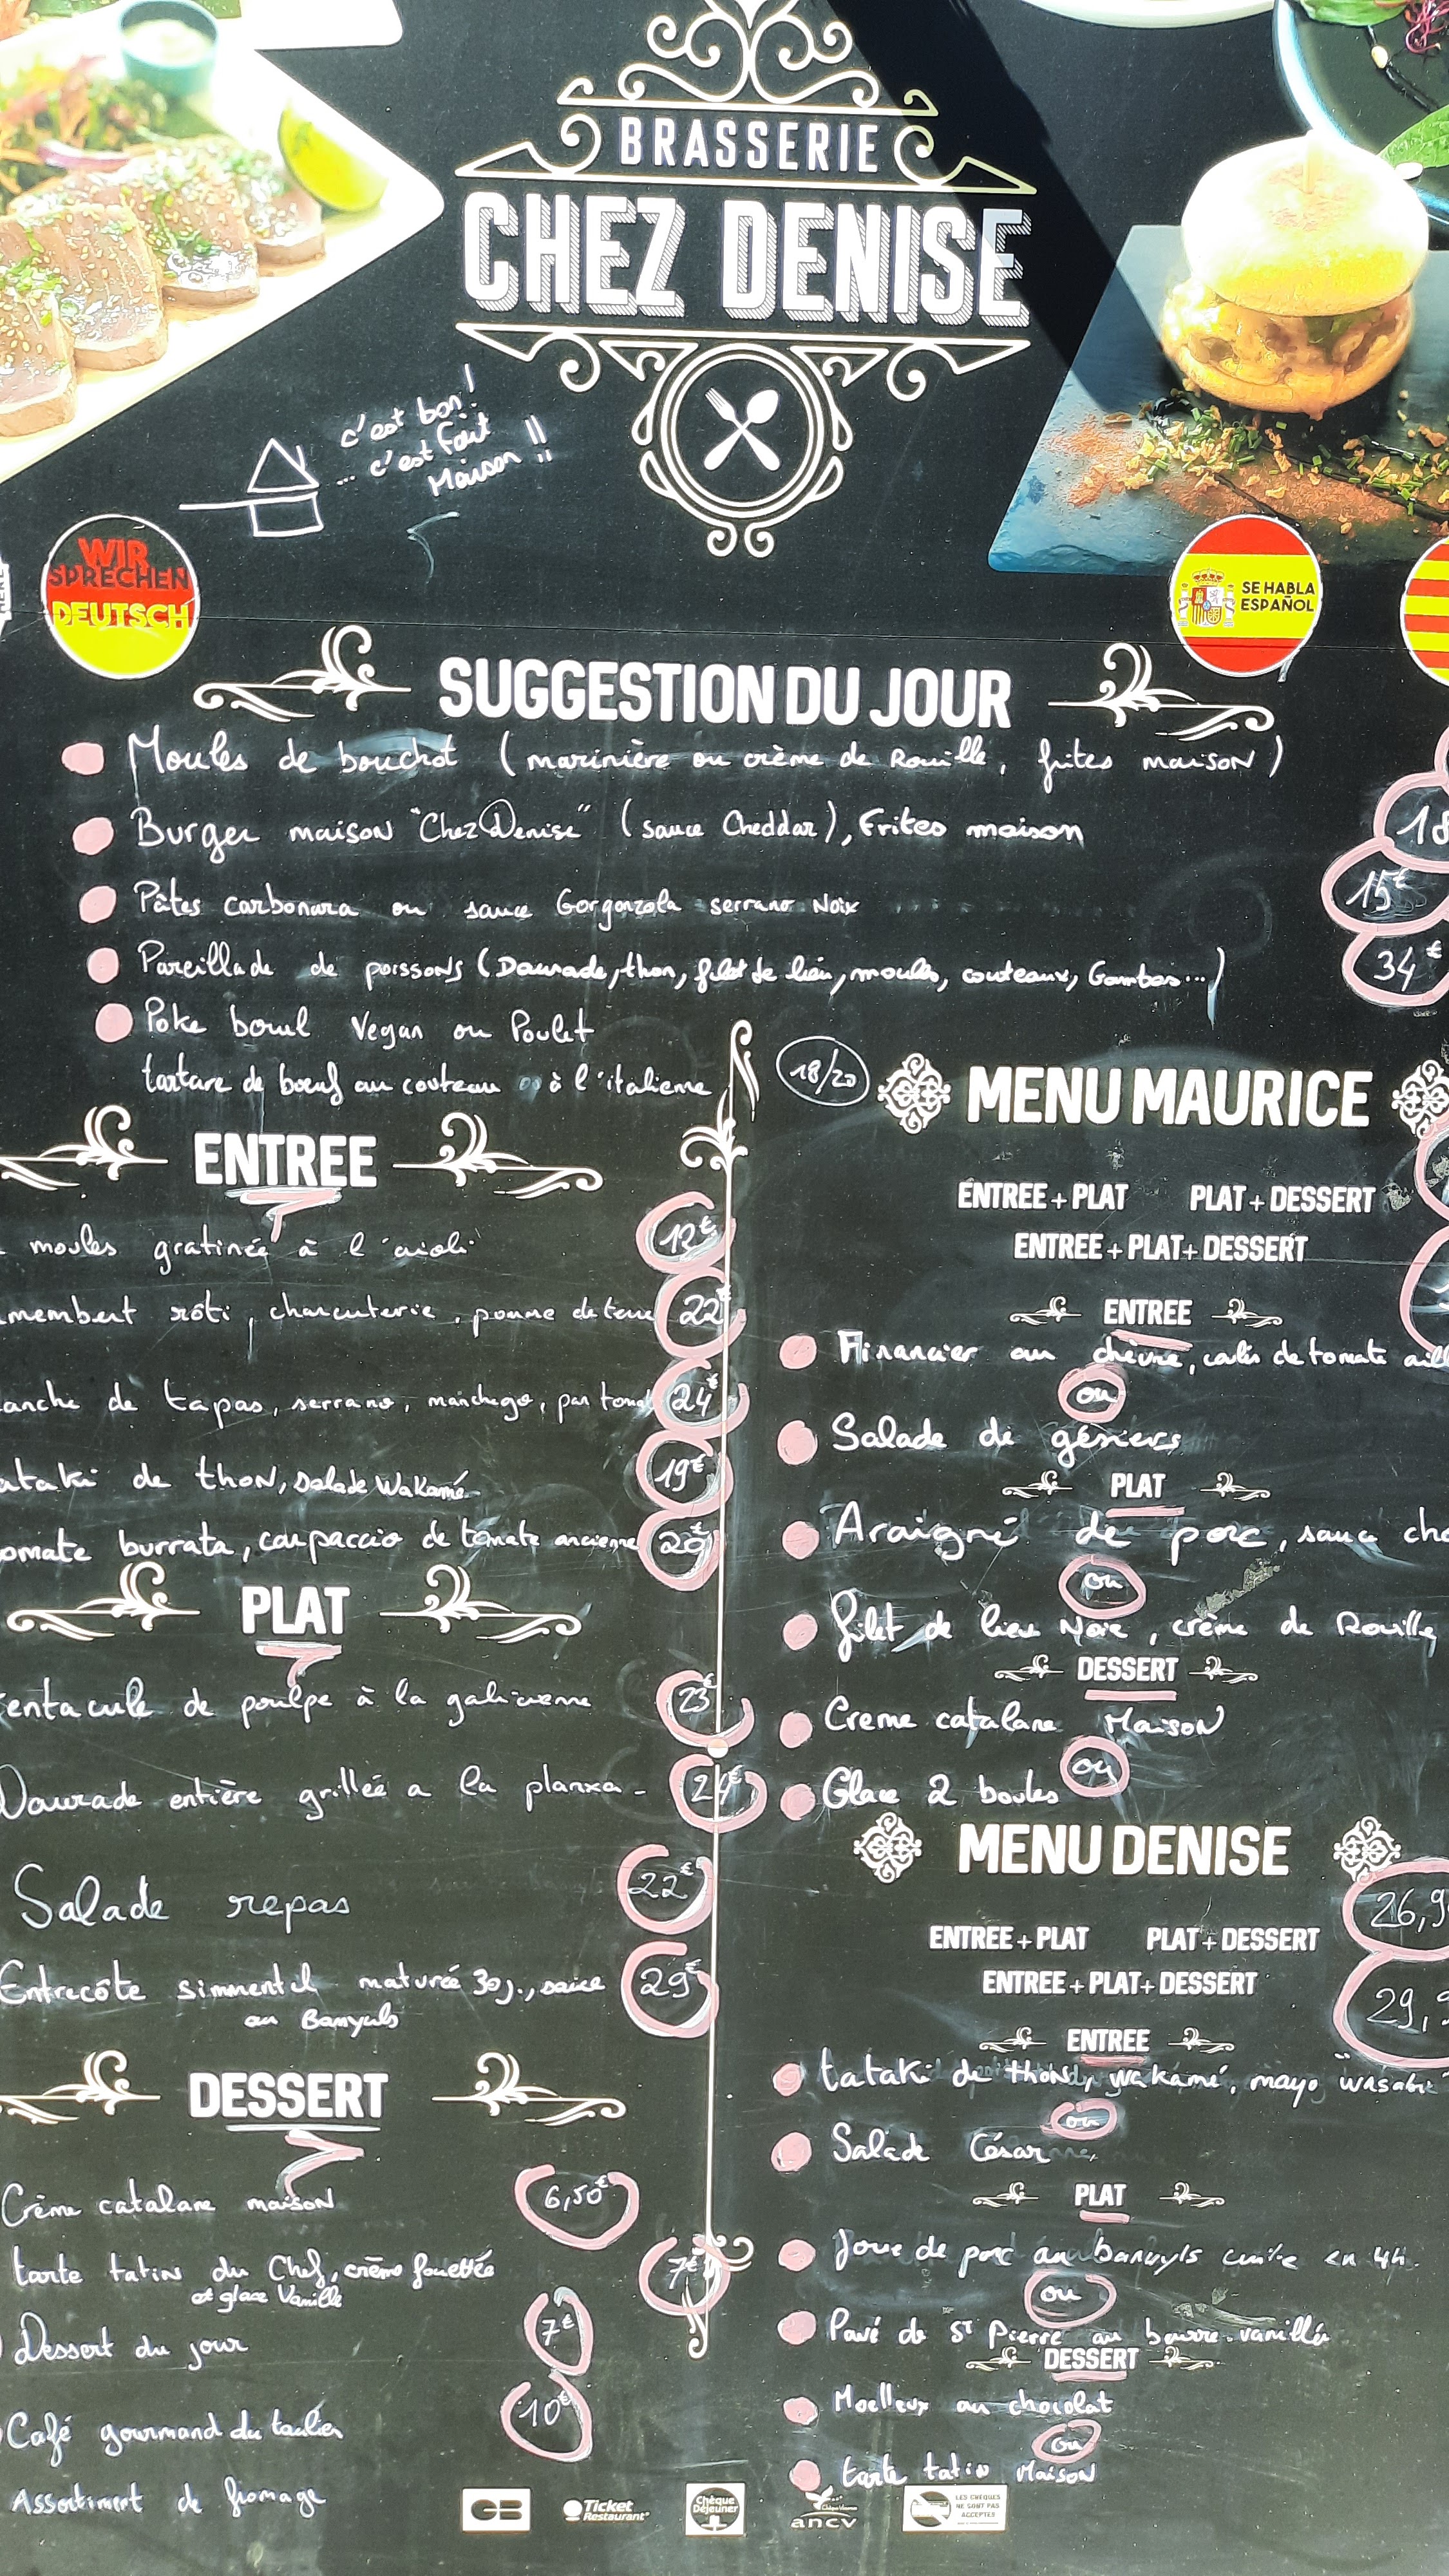 BRASSERIE
CHEZ DENISE
c'est bon!
... c'est fait
Maison !!
WIR
SPRECHEN
DEUTSCH
SE HABLA
ESPAÑOL
SUGGESTION DU JOUR
Moules de bouchot (marinière ou crème de Rouille, frites maison)
Burger maison "Chez Denise" (sauce Cheddar), Frites maison 18
Pâtes carbonara ou sauce Gorgonzola serrano Noix 15€
Pareillade de poissons (Daurade, thon, filet de lieu, moules, couteaux, Gambas...) 34€
Poke bowl Vegan ou Poulet
tartare de boeuf au couteau à l'italienne 18/20
ENTREE
moules gratinée à l'aioli 12€
membert rôti, charcuterie, pomme de terre 22€
anche de tapas, serrano, manchego, pan tomat 24€
ataki de thon, salade Wakamé 19€
omate burrata, carpaccio de tomate ancienne 20€
PLAT
entacule de poulpe à la galicienne 23€
Daurade entière grillée a la planxa - 24€
Salade repas 22€
Entrecôte simmental maturée 30j., sauce 29€
au Banyuls
DESSERT
Crème catalane maison 6,50€
tarte tatin du Chef, crème fouettée 7€
et glace Vanille
Dessert du jour 7€
Café gourmand du taulier 10€
Assortiment de fromage
MENU MAURICE
ENTREE + PLAT PLAT + DESSERT
ENTREE + PLAT + DESSERT
ENTREE
Financier au chèvre, coulis de tomate
ou
Salade de gésiers
PLAT
Araigné de porc, sauce
ou
filet de lieu Noir, crème de Rouille
DESSERT
Creme catalane Maison
ou
Glace 2 boules
MENU DENISE
ENTREE + PLAT PLAT + DESSERT 26,9
ENTREE + PLAT + DESSERT 29,9
ENTREE
tataki de thon, wakamé, mayo wasabi
ou
Salade César
PLAT
Joue de porc au banuyls cuite en 4h.
ou
Pavé de St Pierre au beurre vanillé
DESSERT
Moelleux au chocolat
ou
tarte tatin Maison
CB
Ticket
Restaurant
Chèque
Déjeuner
ancv
LES CHÈQUES
NE SONT PAS
ACCEPTÉS